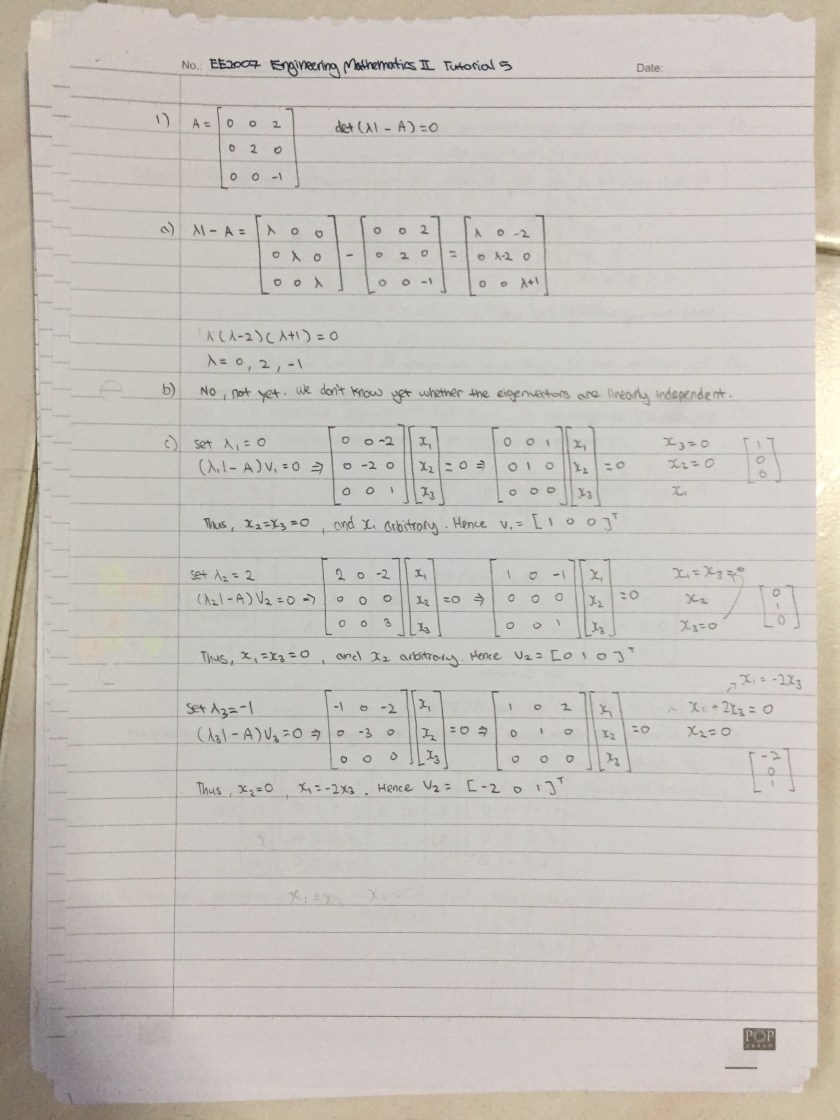 No.: EE2007 Engineering Mathematics II Tutorial 5 Date:
1) A = [0 0 2; 0 2 0; 0 0 -1] det(λI - A) = 0
a) λI - A = [λ 0 0; 0 λ 0; 0 0 λ] - [0 0 2; 0 2 0; 0 0 -1] = [λ 0 -2; 0 λ-2 0; 0 0 λ+1]
λ(λ-2)(λ+1) = 0
λ = 0, 2, -1
b) No, not yet. We don't know yet whether the eigenvectors are linearly independent.
c) set λ₁ = 0
(λ₁I - A)V₁ = 0 ⇒ [0 0 -2; 0 -2 0; 0 0 1] [x₁; x₂; x₃] = 0 ⇒ [0 0 1; 0 1 0; 0 0 0] [x₁; x₂; x₃] = 0 x₃ = 0 x₂ = 0 x₁ [1; 0; 0]
Thus, x₂ = x₃ = 0, and x₁ arbitrary. Hence v₁ = [1 0 0]ᵀ
set λ₂ = 2
(λ₂I - A)V₂ = 0 ⇒ [2 0 -2; 0 0 0; 0 0 3] [x₁; x₂; x₃] = 0 ⇒ [1 0 -1; 0 0 0; 0 0 1] [x₁; x₂; x₃] = 0 x₁ = x₃ = 0 x₂ x₃ = 0 [0; 1; 0]
Thus, x₁ = x₃ = 0, and x₂ arbitrary. Hence V₂ = [0 1 0]ᵀ
x₁ = -2x₃
set λ₃ = -1
(λ₃I - A)V₃ = 0 ⇒ [-1 0 -2; 0 -3 0; 0 0 0] [x₁; x₂; x₃] = 0 ⇒ [1 0 2; 0 1 0; 0 0 0] [x₁; x₂; x₃] = 0 x₁ + 2x₃ = 0 x₂ = 0 [-2; 0; 1]
Thus, x₂ = 0, x₁ = -2x₃. Hence V₂ = [-2 0 1]ᵀ
POP